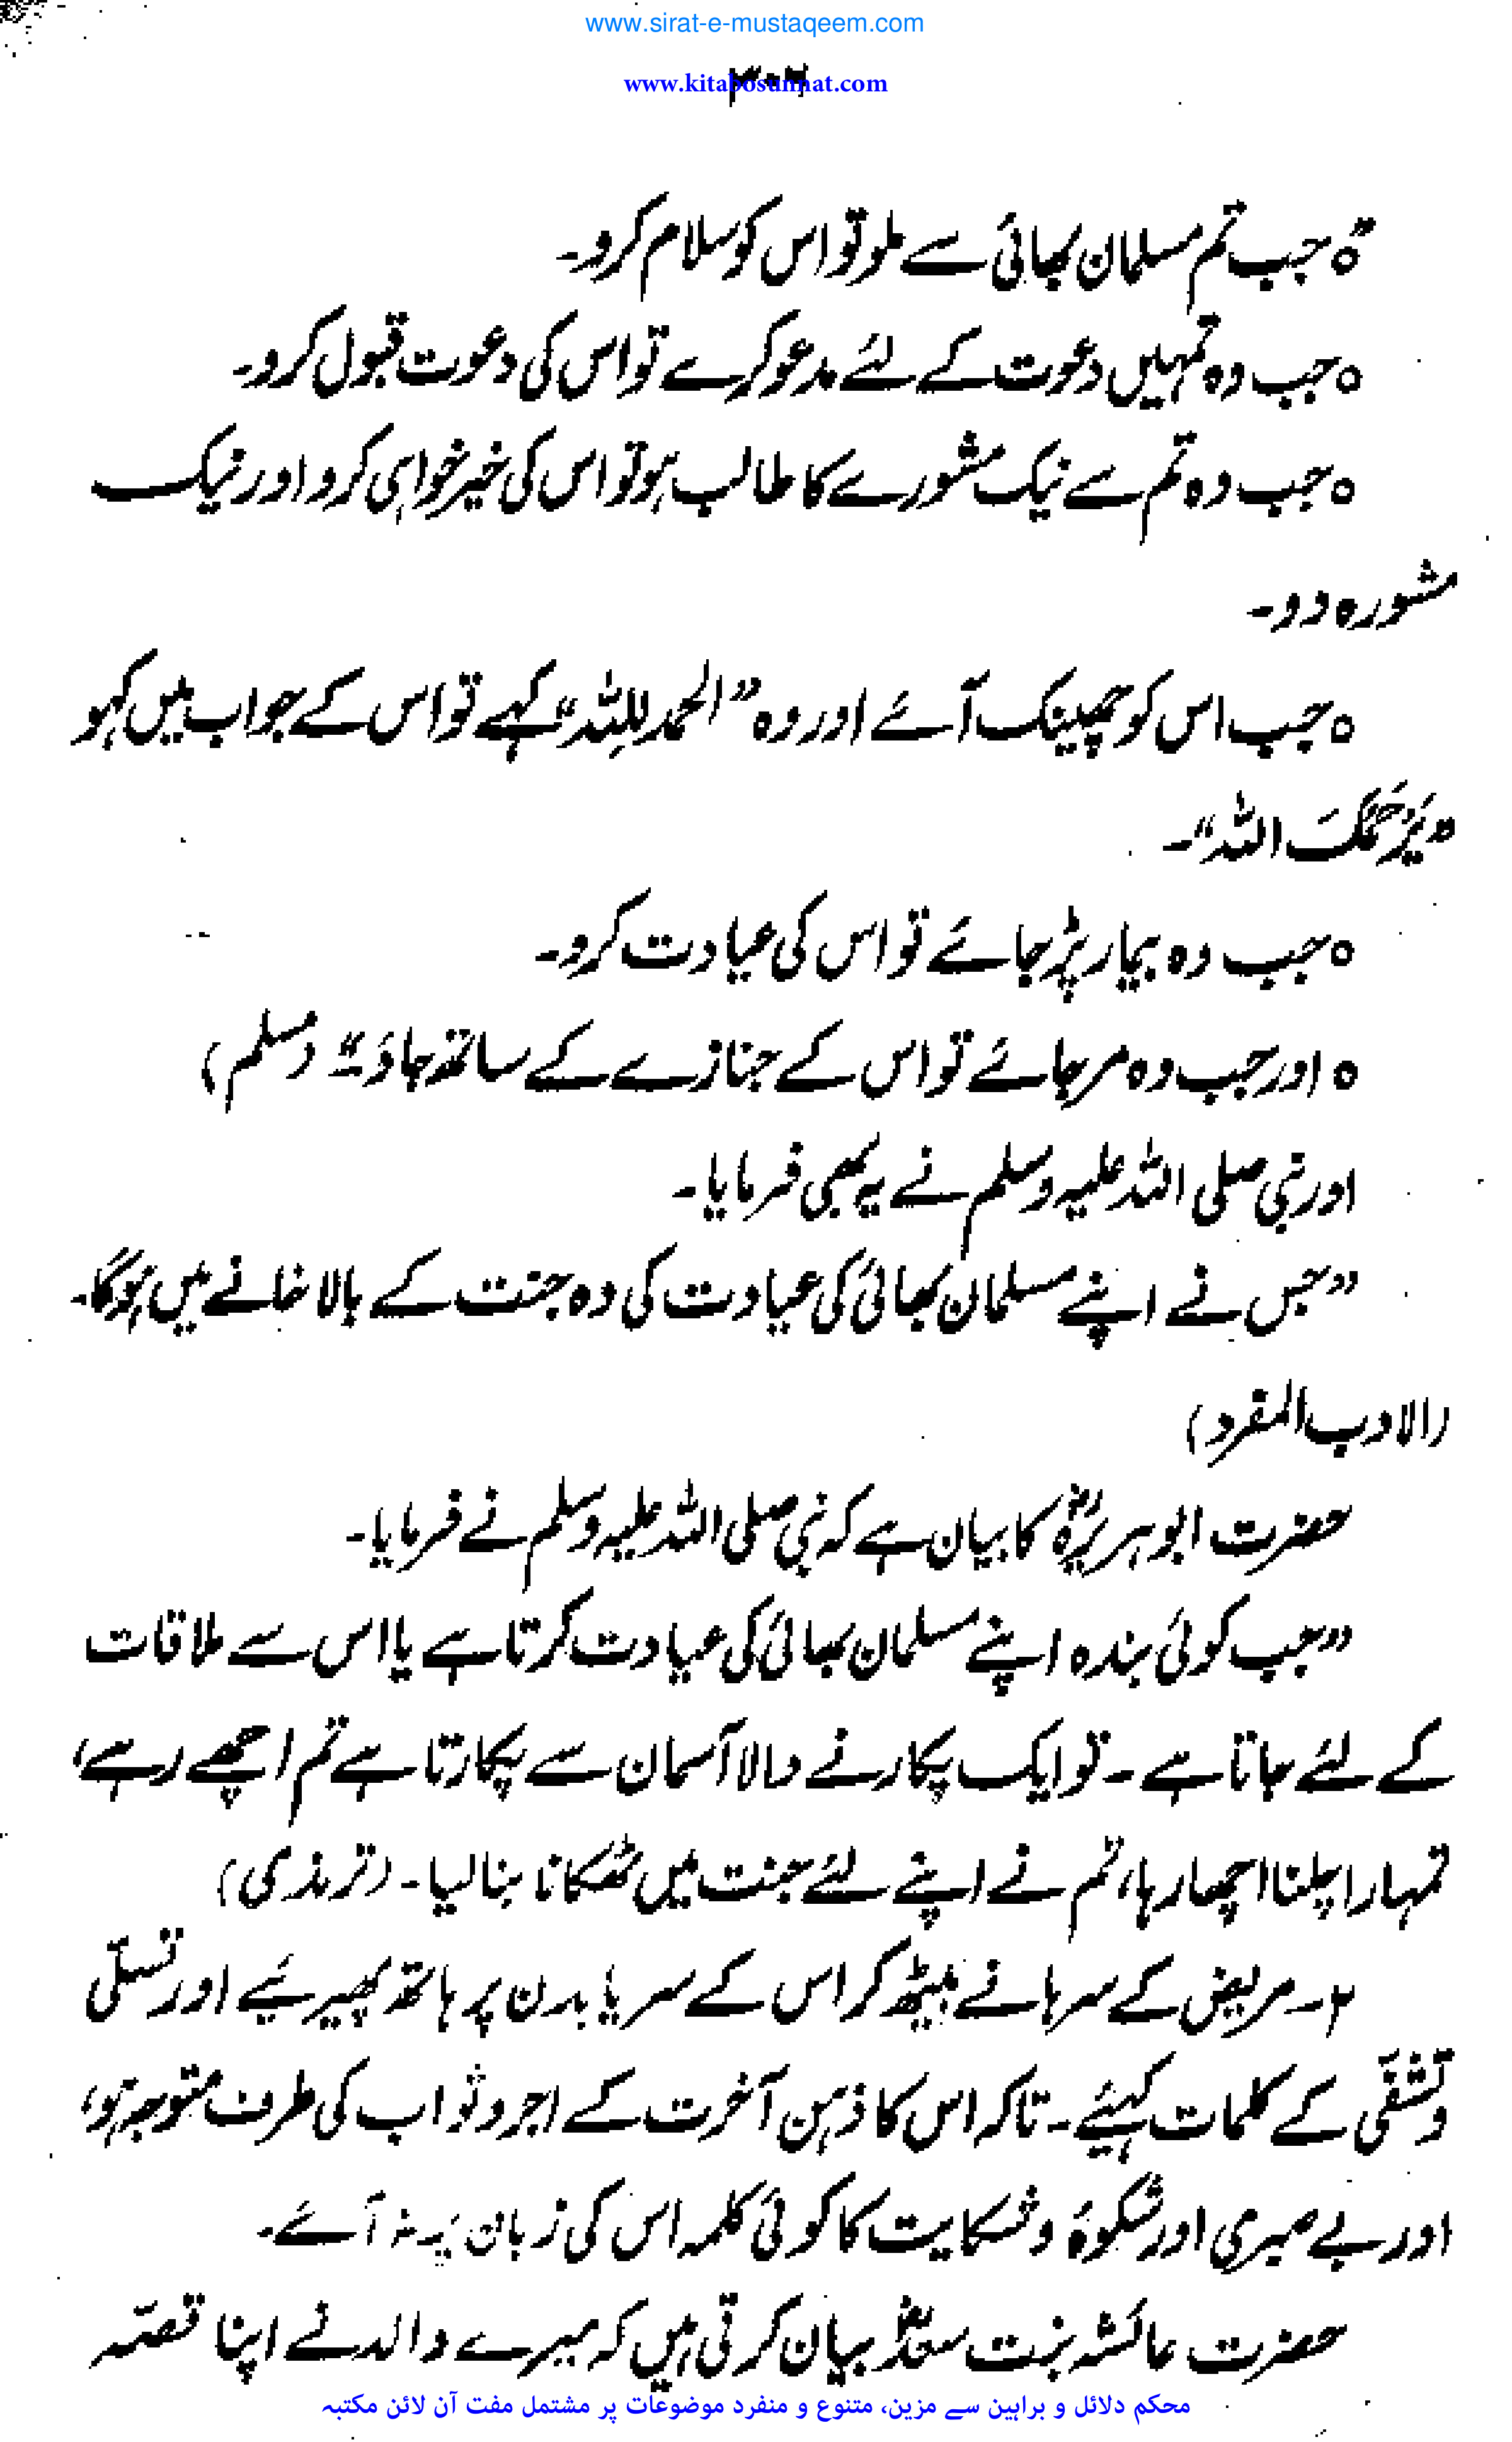 www.sirat-e-mustaqeem.com
www.kitabosunnat.com
۳۰۲
"o جب تم مسلمان بھائی سے ملو تو اس کو سلام کرو۔
o جب وہ تمہیں دعوت کے لئے مدعو کرے تو اس کی دعوت قبول کرو۔
o جب وہ تم سے نیک مشورے کا طالب ہو تو اس کی خیر خواہی کرو اور نیک
مشورہ دو۔
o جب اس کو چھینک آئے اور وہ "الحمد للہ" کہے تو اس کے جواب میں کہو
"یَرْحَمُکَ اللہ"۔
o جب وہ بیمار پڑ جائے تو اس کی عیادت کرو۔
o اور جب وہ مرجائے تو اس کے جنازے کے ساتھ جاؤ۔" (مسلم)
اور نبی صلی اللہ علیہ وسلم نے یہ بھی فرمایا۔
"جس نے اپنے مسلمان بھائی کی عیادت کی وہ جنت کے بالا خانے میں ہوگا۔
(الادب المفرد)
حضرت ابو ہریرہؓ کا بیان ہے کہ نبی صلی اللہ علیہ وسلم نے فرمایا۔
"جب کوئی بندہ اپنے مسلمان بھائی کی عیادت کرتا ہے یا اس سے ملاقات
کے لئے جاتا ہے۔ تو ایک پکارنے والا آسمان سے پکارتا ہے تم اچھے رہے،
تمہارا چلنا اچھا رہا، تم نے اپنے لئے جنت میں ٹھکانا بنا لیا۔ (ترمذی)
۲۔ مریض کے سرہانے بیٹھ کر اس کے سر یا بدن پر ہاتھ پھیریئے اور تسلّی
و تشفّی کے کلمات کہیئے۔ تاکہ اس کا ذہن آخرت کے اجر و ثواب کی طرف متوجہ ہو،
اور بے صبری اور شکوۂ و شکایت کا کوئی کلمہ اس کی زبان پر نہ آئے۔
حضرت عائشہ بنت سعدؓ بیان کرتی ہیں کہ میرے والد نے اپنا قصّہ
محکم دلائل و براہین سے مزین، متنوع و منفرد موضوعات پر مشتمل مفت آن لائن مکتبہ